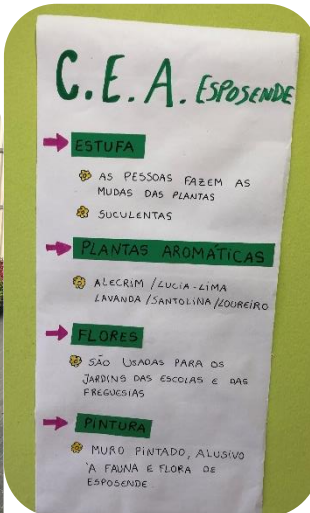 C.E.A. ESPOSENDE
ESTUFA
AS PESSOAS FAZEM AS
MUDAS DAS PLANTAS
SUCULENTAS
PLANTAS AROMÁTICAS
ALECRIM / LUCIA-LIMA
LAVANDA / SANTOLINA / LOUREIRO
FLORES
SÃO USADAS PARA OS
JARDINS DAS ESCOLAS E DAS
FREGUESIAS
PINTURA
MURO PINTADO, ALUSIVO
'A FAUNA E FLORA DE
ESPOSENDE